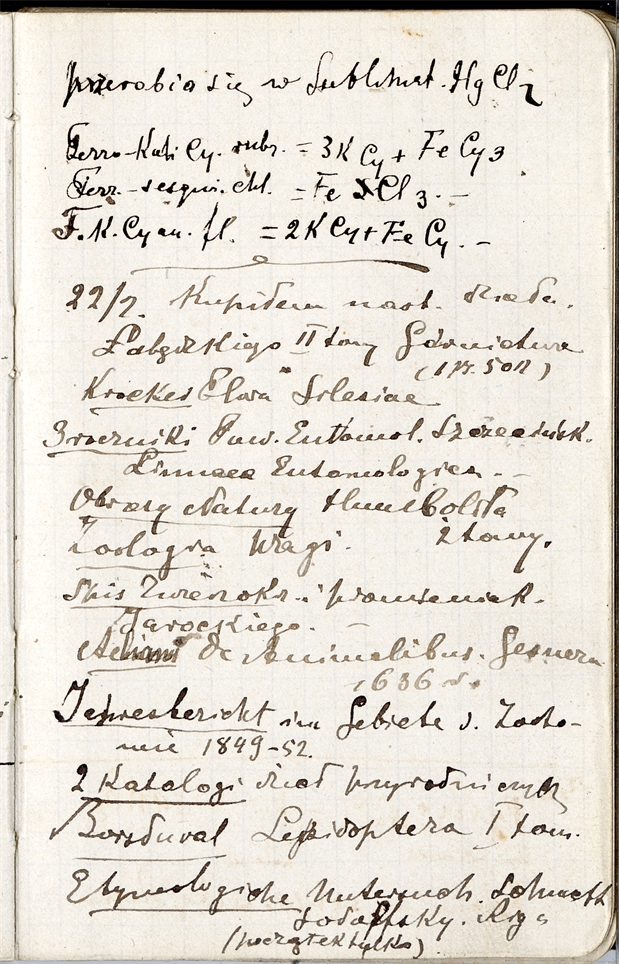 przerabia się w Sublimat. HgCl2
Ferro-Kali Cy. rubr. = 3K Cy + Fe Cy3
Ferr.-sesqui. chl. = Fe Cl3. -
F. K. Cyan. fl. = 2K Cy + Fe Cy. -
22/7. Kupiłem nast. dzieła.
Łabęckiego II tomy Górnictwa
(1 rs. 50 )
Krocker Flora Silesiae
3 roczniki Tow. Entomol. Szczecińsk.
Linnaea Entomologica. -
Obrazy Natury Humboldta
Zoologia Wagi. 2 tomy.
Spis Zwierzokr. i promieniak.
Jarockiego. -
Aeliani De Animalibus. Gesnera
1636 r.
Jahresbericht im Gebiete d. Zooto-
mie 1849-52.
2 Katalogi dzieł przyrodniczych
Boisduval Lepidoptera I tom.
Etymologische Untersuch.
Sodoffsky. Ryga
(początek tylko)